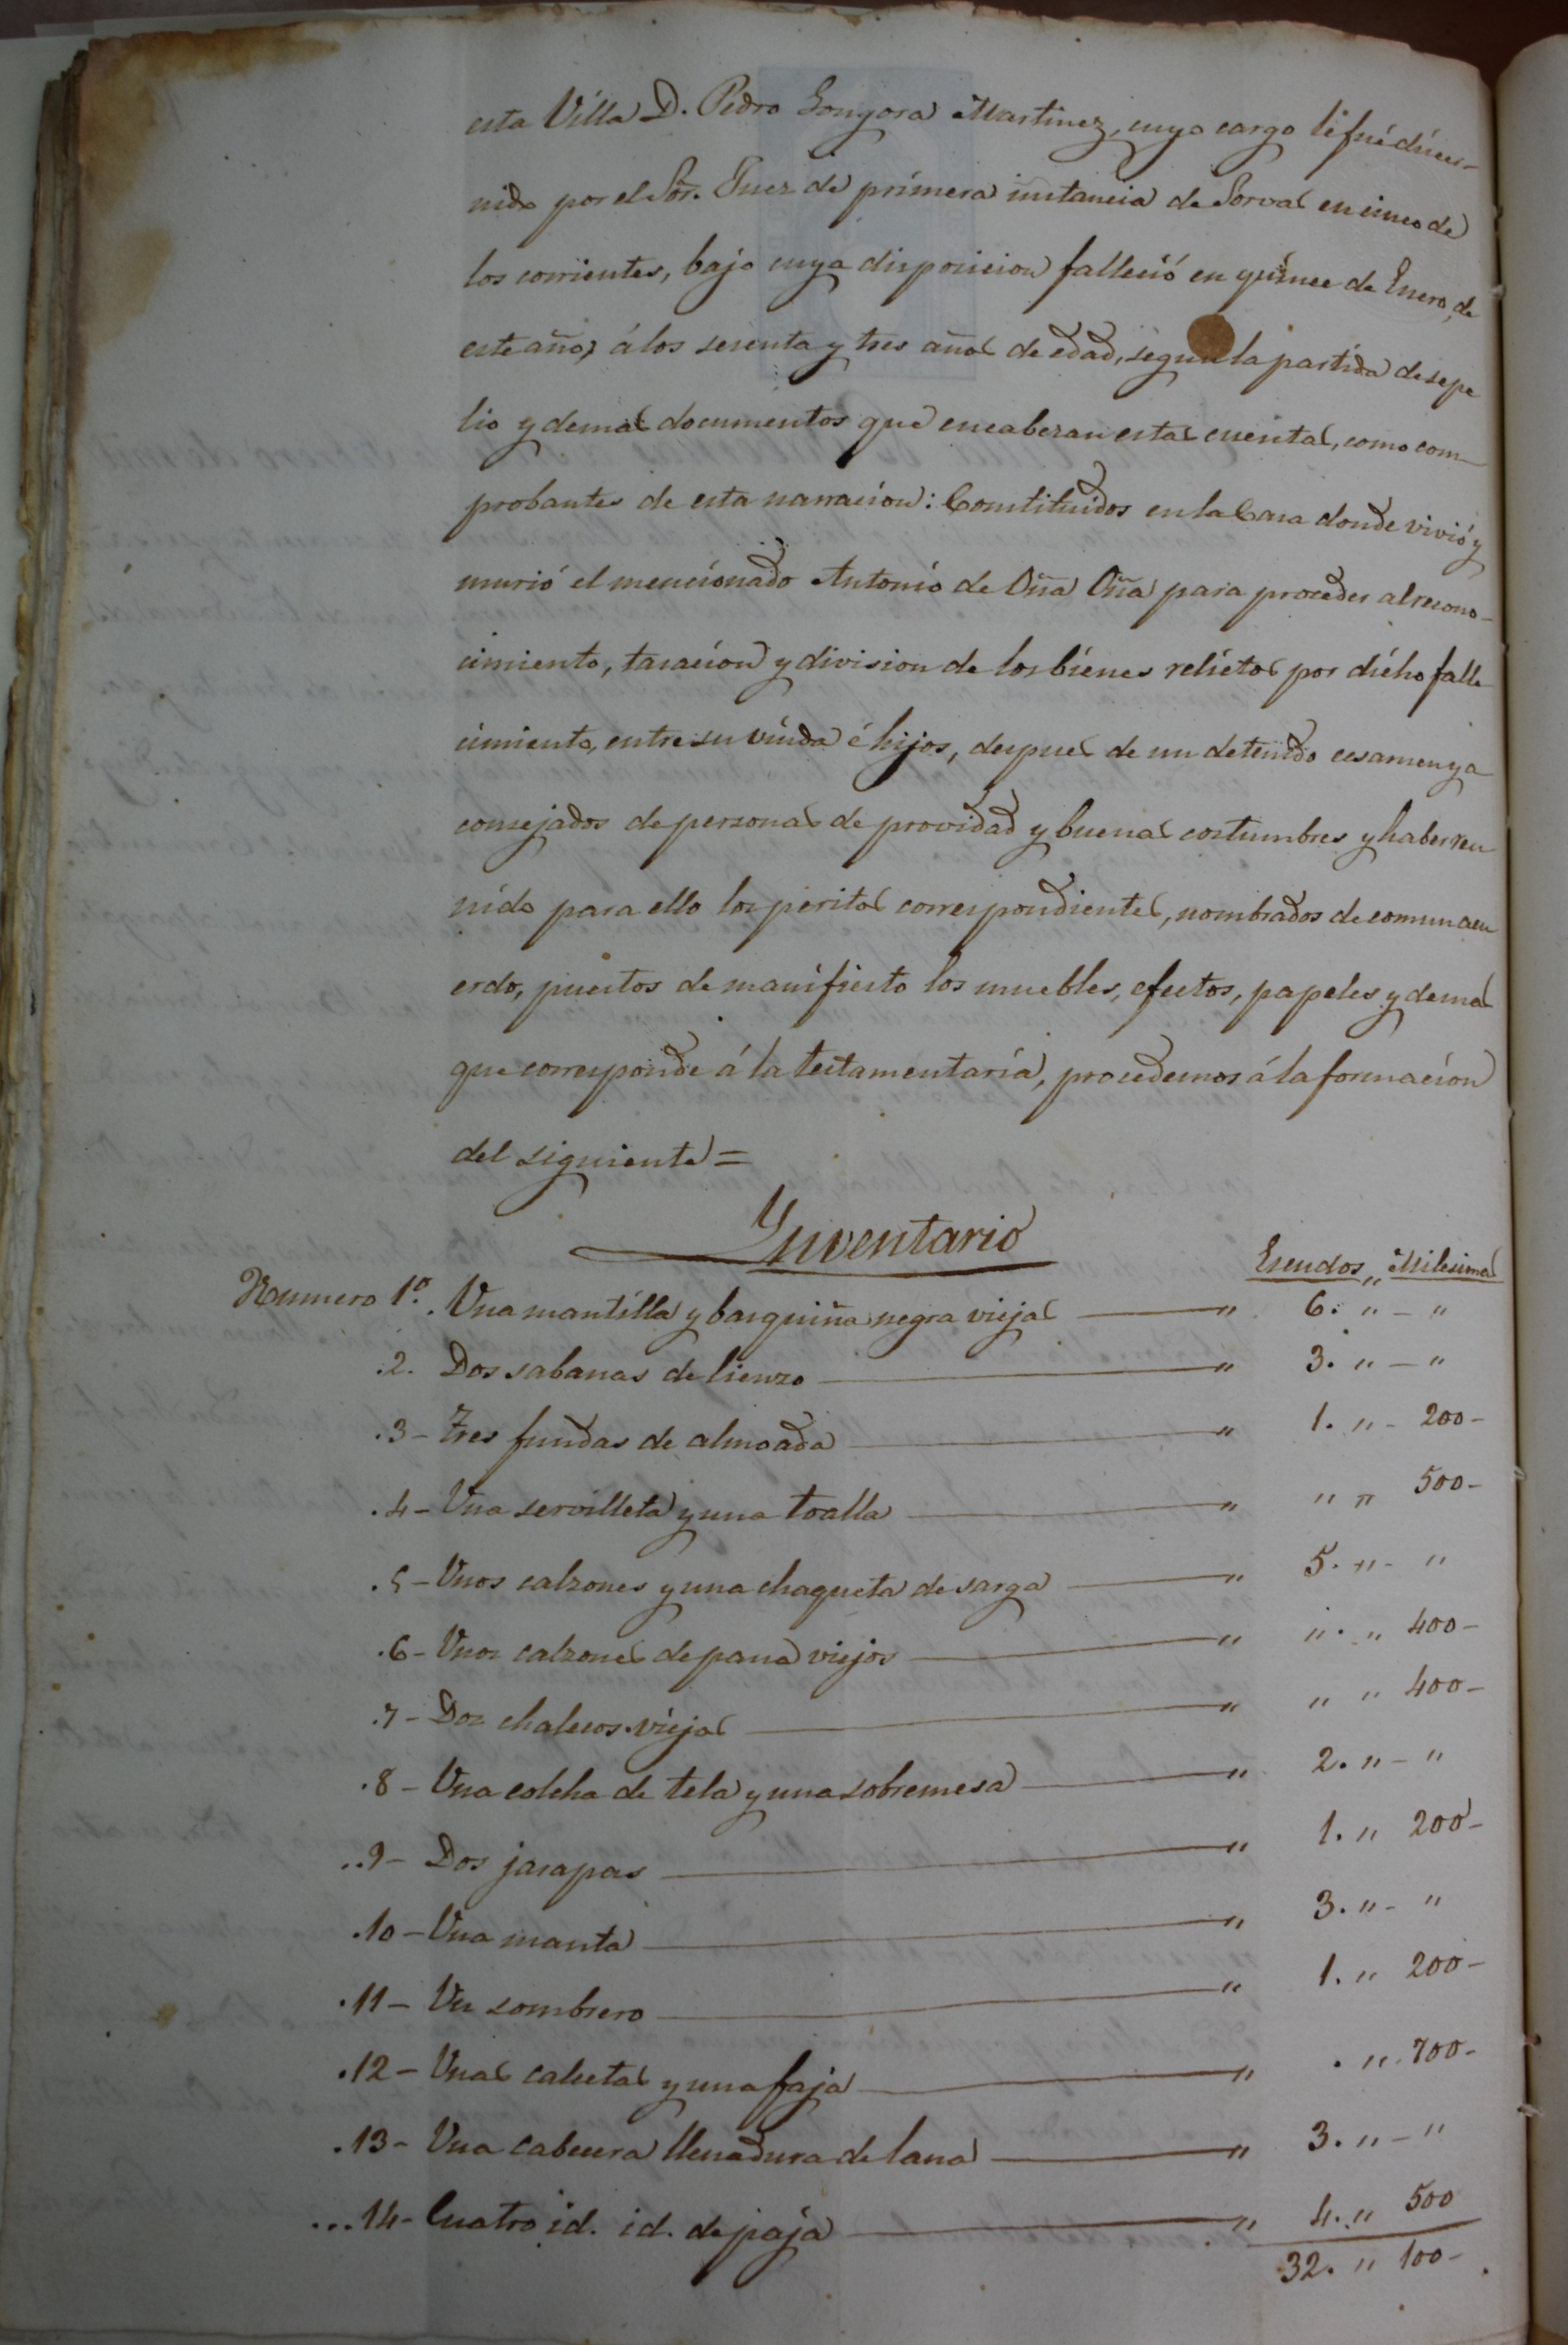 esta Villa D. Pedro Gongora Martinez, cuyo cargo le fué dicer-
nido por el Sõr. Juez de primera instancia de Sorbas en cinco de
los corrientes, bajo cuya disposicion falleció en quince de Enero, de
este año, á los sesenta y tres años de edad, segun la partida de sepe
lio y demas documentos que encabezan estas cuentas, como com-
probantes de esta narracion: Constituidos en la Casa donde vivió y
murió el mencionado Antonio de Oña Oña para proceder al recono-
cimiento, tasacion y division de los bienes relictos por dicho falle
cimiento, entre su viuda é hijos, despues de un detenido ecsamen y a
consejados de personas de providad y buenas costumbres y haber reu
nido para ello los peritos correspondientes, nombrados de comun acu
erdo, puestos de manifiesto los muebles, efectos, papeles y demas
que corresponde á la testamentaría, procedemos á la formacion
del siguiente =
Ynventario
Escudos „ Milesimas
Numero 1º. Una mantilla y basquiña negra viejas — „ 6. „ – „
.2. Dos sabanas de lienzo — „ 3. „ – „
.3 – Tres fundas de almoada — „ 1. „ – 200 –
.4 – Una servilleta y una toalla — „ „ „ 500 –
.5 – Unos calzones y una chaqueta de sarga — „ 5. „ – „
.6 – Unos calzones de pana viejos — „ „. „ 400 –
.7 – Dos chalecos viejos — „ „ „ 400 –
.8 – Una colcha de tela y una sobremesa — „ 2. „ – „
..9 – Dos jarapas — „ 1. „ 200 –
.10 – Una manta — „ 3. „ – „
.11 – Un sombrero — „ 1. „ 200 –
.12 – Unas calcetas y una faja — „ . „ 700 –
.13 – Una cabecera llenadura de lana — „ 3. „ – „
...14 – Cuatro id. id. de paja — „ 4. „ 500
32. „ 100 –